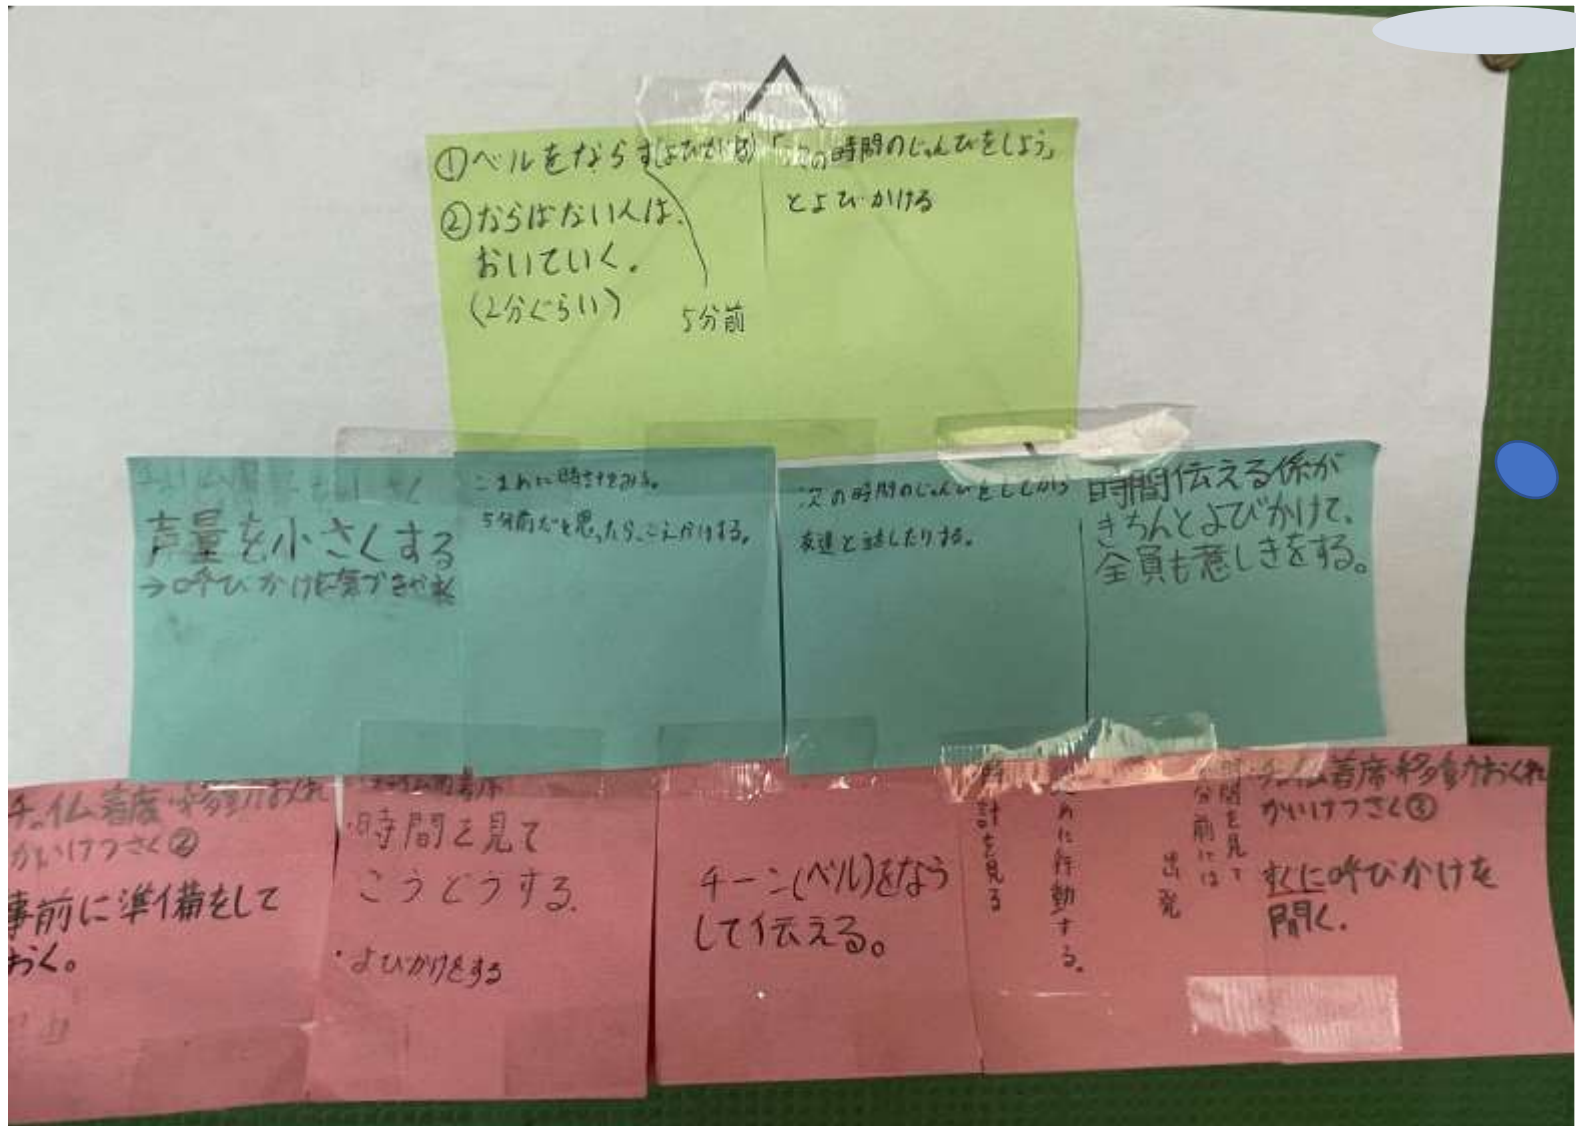 ①ベルをならす(よびかけ)
②ならばない人は、
おいていく。
(2分ぐらい)
5分前
「次の時間のじゅんびをしよう」
とよびかける
声量を小さくする
→呼びかけに気づきやすく
こまめに時計をみる。
5分前だと思ったら、こえかけする。
次の時間のじゅんびをしてから
友達と話したりする。
時間伝える係が
きちんとよびかけて、
全員も意しきをする。
チャイム着席・移動おくれ
かいけつさく②
事前に準備をして
おく。
・時間を見て
こうどうする。
・よびかけをする
チーン(ベル)をなら
して伝える。
時計を見る
めに行動する。
時間を見て
分前には
出発
チャイム着席・移動おくれ
かいけつさく③
すぐに呼びかけを
聞く.